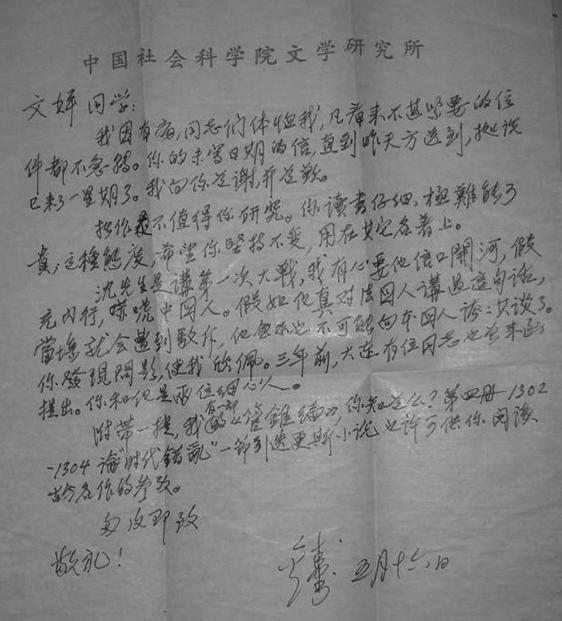 中国社会科学院文学研究所
文娉同学:
我因有病,同志们体恤我,凡看来不甚紧要的信
件都不急转。你的未写日期的信,直到昨天方送到,据说
已来了一星期了。我向你道谢,并道歉。
拙作不值得你研究。你读书仔细,极難能可
貴,这種態度,希望你堅持不变,用在其它名著上。
沈先生是講第一次大戰,我有心要他信口開河,假
充内行,嚇唬中国人。假如他真对法国人講过這句话,
當場就会遭到駁斥,他也不可能向本国人誇: 其談了。
你發現問題,使我欣佩。三年前,大連有位同志也曾来函
提出。你和他是兩位细心人。
附带一提,我有一部《管锥编》,你知道么?第四册1302
-1304 論“时代错亂”一節引迭更斯小说,也许可供你阅读
古今名作的参攷。
匆復即致
敬礼!
五月十六日